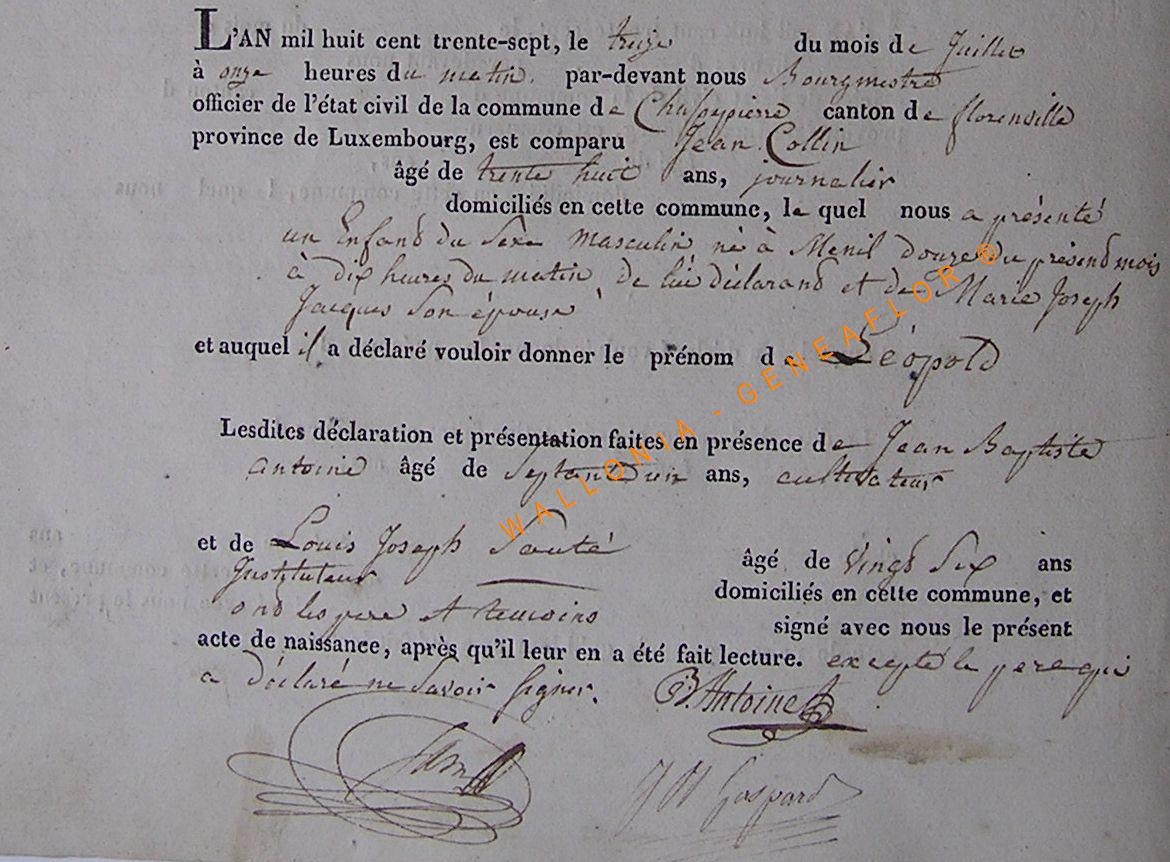 L'AN mil huit cent trente-sept, le treize du mois de Juillet
à onze heures du matin. par-devant nous Bourgmestre
officier de l'état civil de la commune de Chassepierre canton de florenville
province de Luxembourg, est comparu Jean Collin
âgé de trente huit ans, journalier
domiciliés en cette commune, le quel nous a présenté
un Enfand du Sexe masculin né à Menil douze du présend mois
à dix heures du matin, de lui déclarand et de Marie Joseph
Jacques Son épouse
et auquel il a déclaré vouloir donner le prénom de Léopold
Lesdites déclaration et présentation faites en présence de Jean Baptiste
antoine âgé de Septante un ans, cultivateur
et de Louis Joseph âgé de vingt Six ans
Instituteur domiciliés en cette commune, et
ond les pere et temoins signé avec nous le présent
acte de naissance, après qu'il leur en a été fait lecture. excepté le pere qui
a déclaré ne Savoir Signer.
B. Antoine
Gaspard
WALLONIA - GENEAFLOR ®